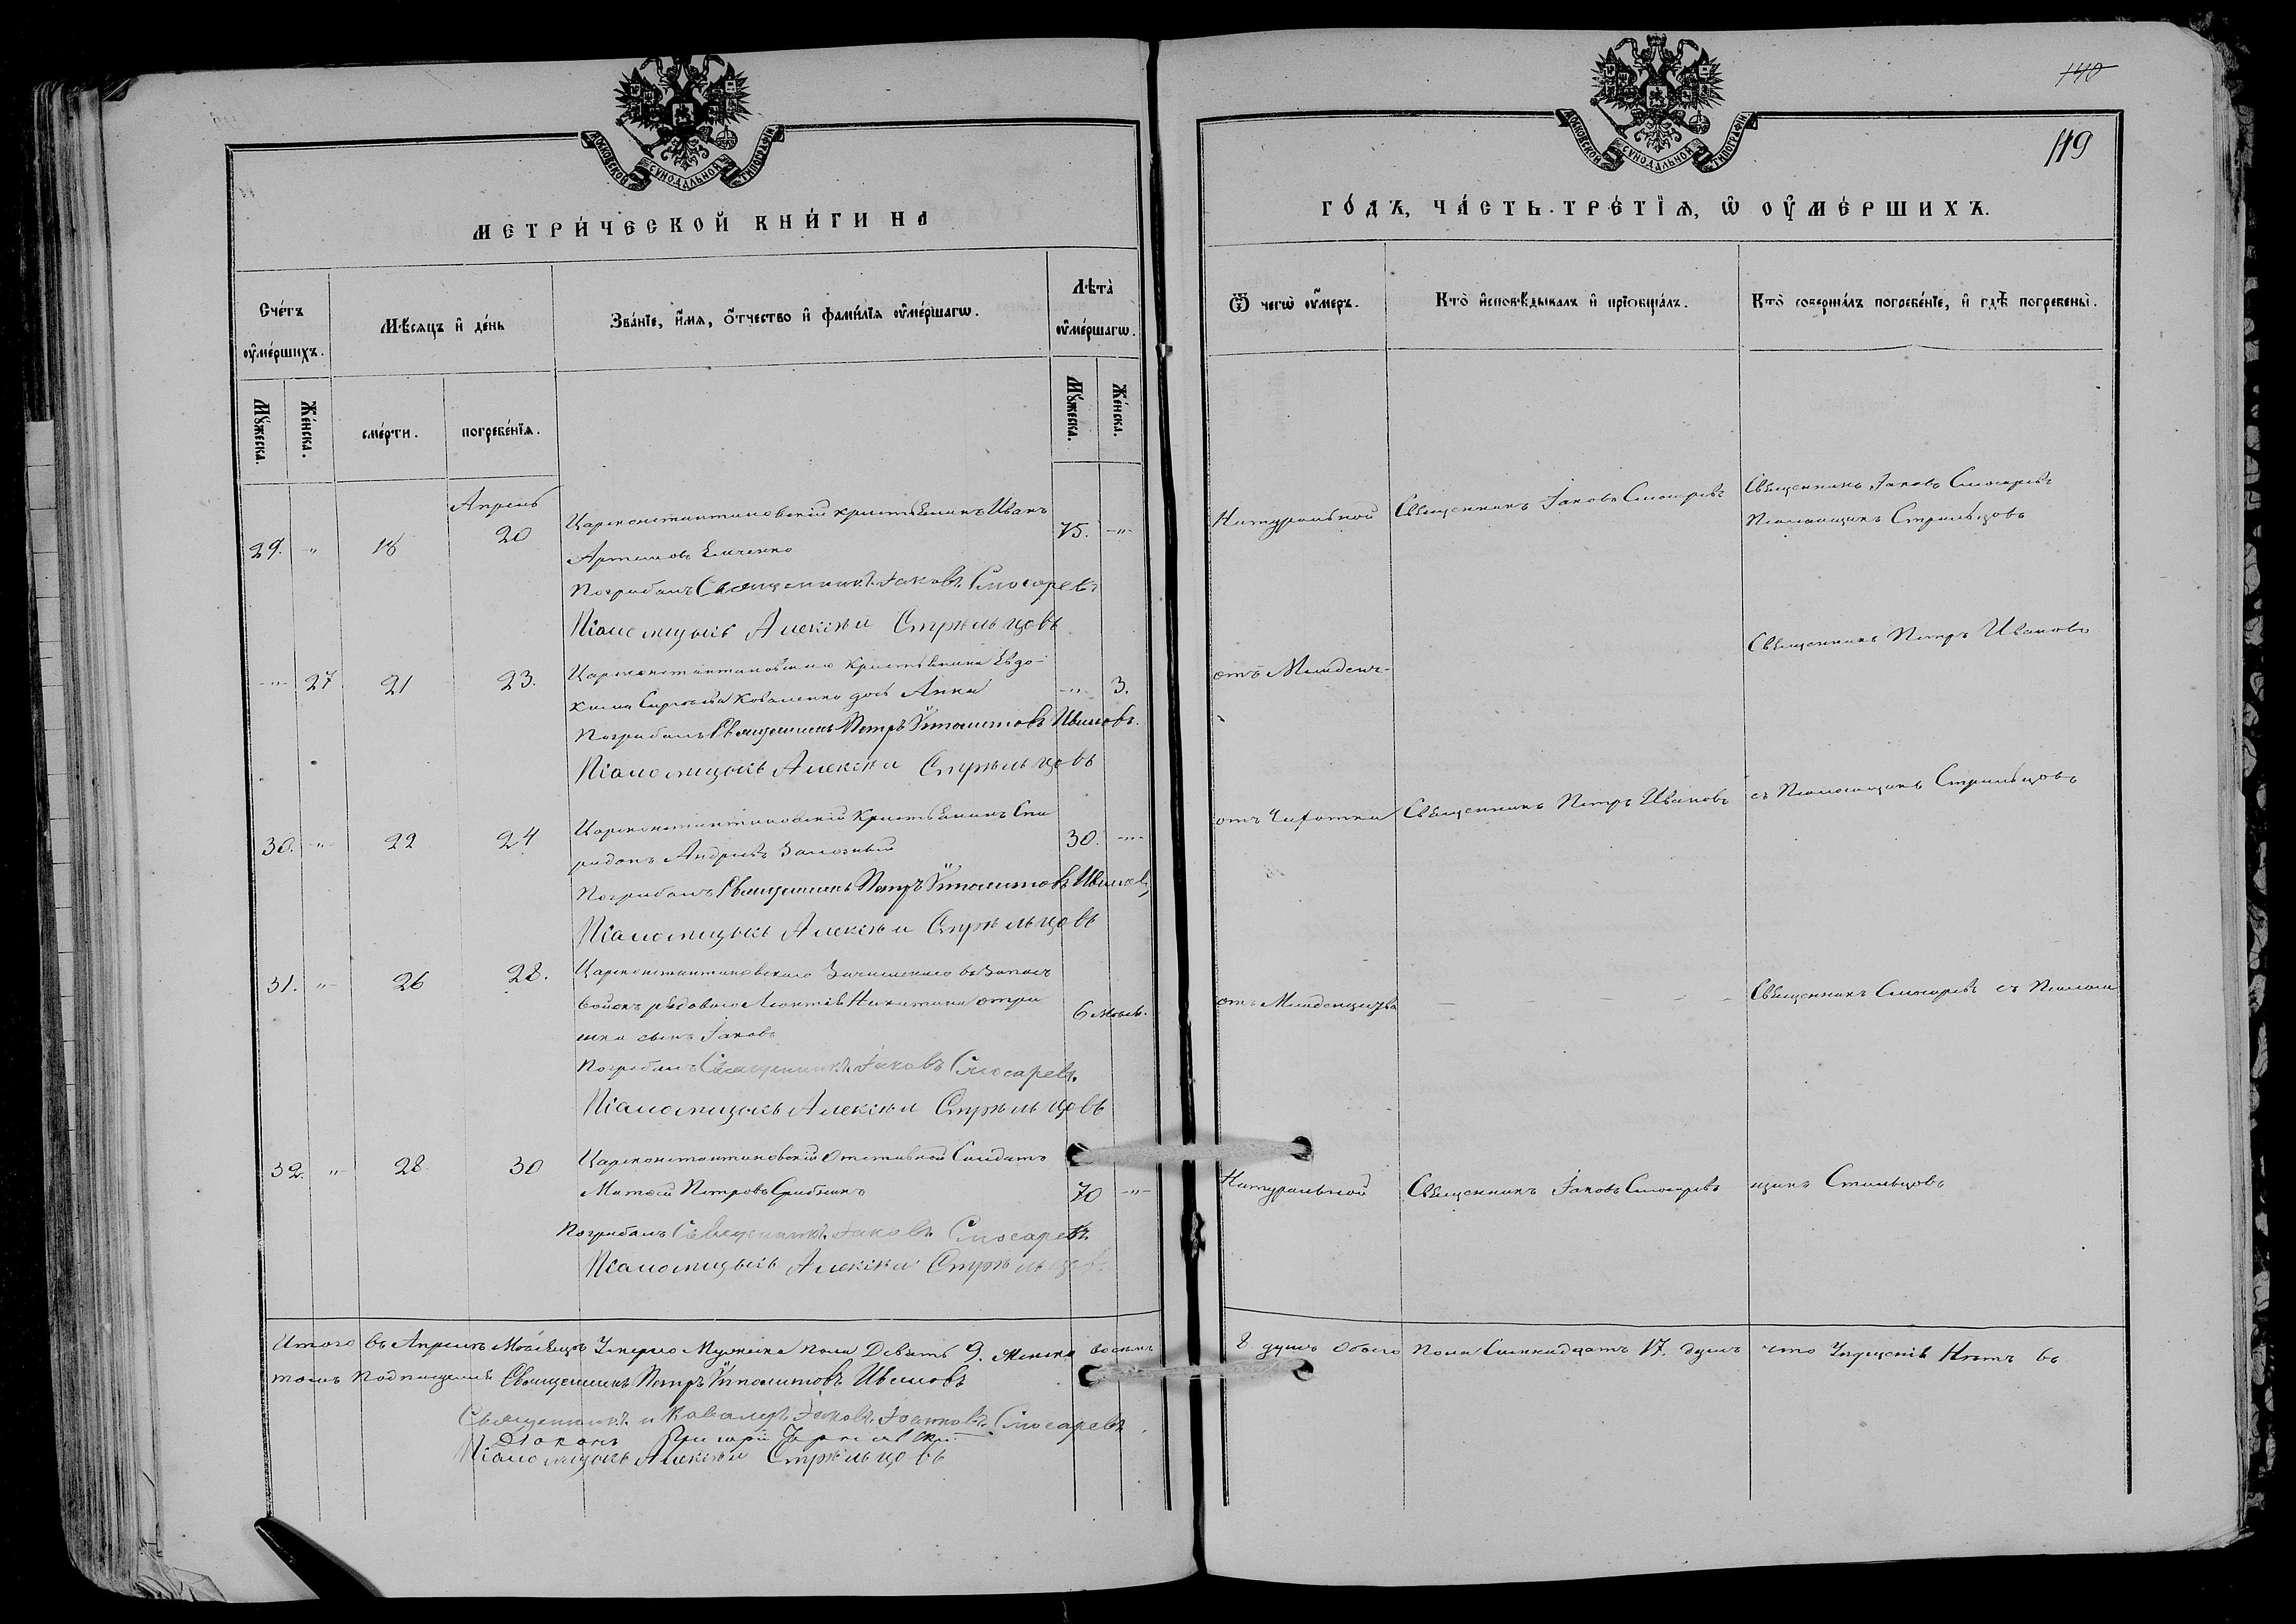 МОСКОВСКОЙ СѴНОДАЛЬНОЙ ТИПОГРАФІИ
МЕТРИ́ЧЕСКОЙ КНИ́ГИ НА
Сче́тъ ᲂу҆ме́ршихъ.
Мѣ́сяцъ и҆ де́нь
Зва́нїе, и҆́мя, ѻ҆́тчество и҆ фамилі́я ᲂу҆ме́ршагѡ.
Лѣ́та ᲂу҆ме́ршагѡ.
Мꙋ́жеска.
Же́нска.
сме́рти.
погребе́нїя.
Мꙋ́жеска.
Же́нска.
Апрель
29. -"- 18 20 Цареконстантиновскій крестьянинъ Иванъ 75. -"-
Артемовъ
Погребалъ Священникъ Іаковъ Слюсаревъ
Псаломщикъ Алексѣй Стрѣльцовъ
-"- 27 21 23. Цареконстантиновскаго крестьянина Евдо-
кима Сергѣева Коваленка дочь Анна -"- 3.
Погребалъ Священникъ Петръ Ѵпполитовъ Ивановъ.
Псаломщикъ Алексѣй Стрѣльцовъ
30. -"- 22 24 Цареконстантиновскій Крестьянинъ Спи 30. -"-
ридонъ Андреевъ
Погребалъ Священникъ Петръ Ѵпполитовъ Ивановъ
Псаломщикъ Алексѣй Стрѣльцовъ
31. -"- 26 28. Цареконстантиновскаго Зачисленаго въ Запасъ
войскъ рядоваго Леонтія Никитина
сынъ Іаковъ 6 мѣсяц.
Погребалъ Священникъ Іаковъ Слюсаревъ.
Псаломщикъ Алексѣй Стрѣльцовъ
32. -"- 28. 30 Цареконстантиновскій Отставной Солдатъ
Матѳей Петровъ 70 -"-
Погребалъ Священникъ Іаковъ Слюсаревъ
Псаломщикъ Алексѣй Стрѣльцовъ
Итого въ Апрелѣ Мѣсяцѣ Умерло Мужеска пола Девять 9. Женска восемь
томъ подписуемся Священникъ Петръ Ѵпполитовъ Ивановъ
Священникъ и Кавалеръ Іаковъ Іоанновъ Слюсаревъ.
Діаконъ
Псаломщикъ Алексѣй Стрѣльцовъ
140
119
МОСКОВСКОЙ СѴНОДАЛЬНОЙ ТИПОГРАФІИ
ГО́ДЪ, ЧА́СТЬ ТРЕ́ТЇЯ, Ѡ҆ ОУ҆МЕ́РШИХЪ.
Ѿ чегѡ̀ ᲂу҆́меръ.
Кто̀ и҆сповѣ́дывалъ и҆ прїѻбща́лъ.
Кто̀ соверша́лъ погребе́нїе, и҆ гдѣ̀ погребены̀.
Натуральной Священникъ Іаковъ Слюсаревъ Священникъ Іаковъ Слюсаревъ
Псаломщикъ Стрельцовъ
отъ Младенч- Священникъ Петръ Ивановъ
отъ Чахотки Священникъ Петръ Ивановъ съ Псаломщик. Стрельцовъ
отъ Младенчества Священникъ Слюсаревъ съ Псалом
Натуральной Священникъ Іаковъ Слюсаревъ щикъ Стельцовъ
8 душъ Обоего пола Семнадцать 17. душъ что Упущенія Нѣтъ въ